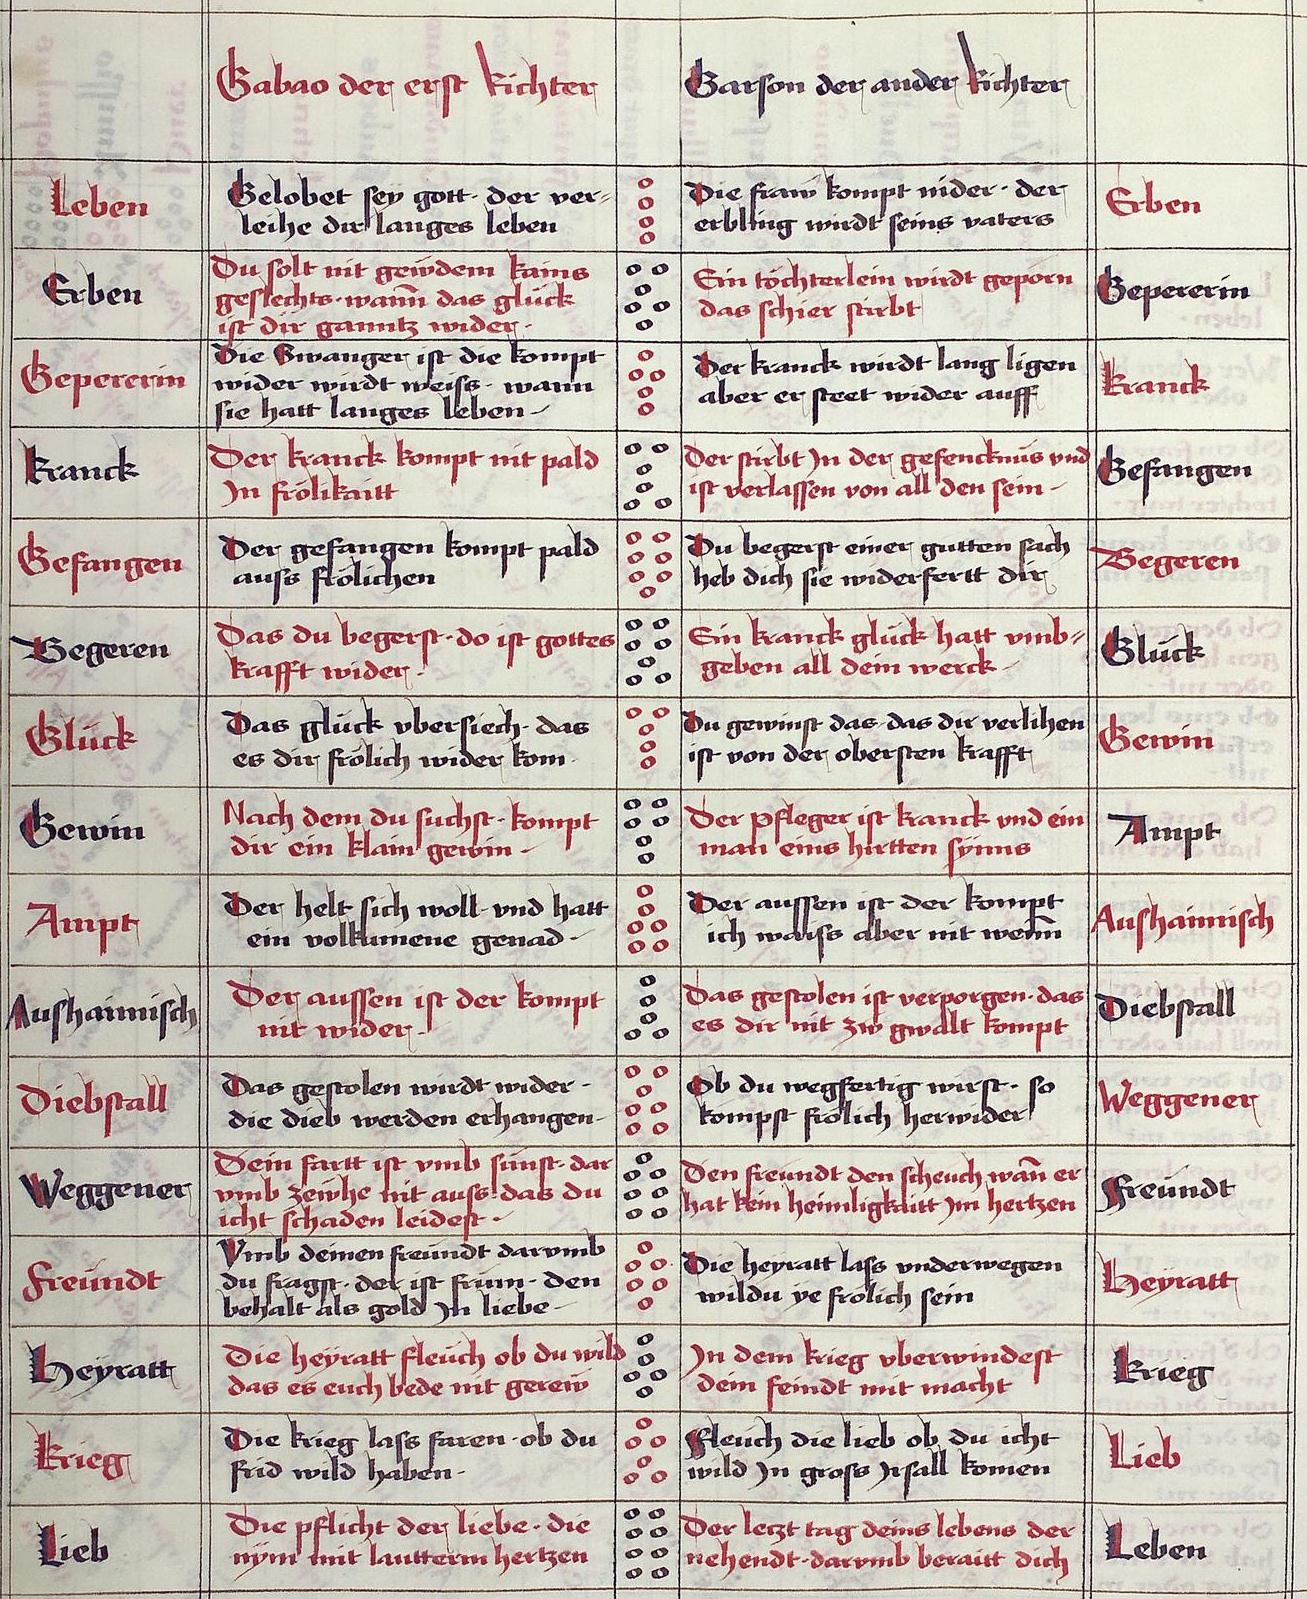 Gabao der erst Richter
Garson der ander Richter
Leben
Gelobet sey gott · der ver=
leihe dir langes leben
Die fraw kompt nider · der
erbling wirdt seins vaters
Erben
Erben
Du solt nit gewdem kains
geslechts · wann̄ das glück
ist dir ganntz wider ·
Ein töchterlein wirdt geporn
das schier stirbt
Gepererin
Gepererin
Die Swanger ist die kompt
wider wirdt weiss · wann
sie hatt langes leben -
Der kranck wirdt lang ligen
aber er steet wider auff
kranck
kranck
Der kranck kompt nit pald
Jn frölikaitt
Der stirbt Jn der gefencknüs vnd
ist verlassen von all den sein -
Gefangen
Gefangen
Der gefangen kompt pald
auss frölichen
Du begerst einer gutten sach
heb dich sie widerfertt dir
Begeren
Begeren
Das du begerst · do ist gottes
krafft wider ·
Ein kranck glück hatt vmb=
geben all dein werck -
Glück
Glück
Das glück vbersiech · das
es dir frölich wider kom ·
Du gewinst das · das dir verlihen
ist von der obersten krafft
Gewin
Gewin
Nach dem du suchst · kompt
dir ein klain gewin -
Der pfleger ist kranck vnd ein
man eins hertten synns
Ampt
Ampt
Der helt sich woll · vnd hatt
ein volkumene genad -
Der aussen ist der kompt
ich waiss aber nit wenn̄
Aushaimisch
Aushaimisch
Der aussen ist der kompt
nit wider -
Das gestolen ist verporgen · das
es dir nit zw gwalt kompt
Diebstall
Diebstall
Das gestolen wirdt wider -
die dieb werden erhangen -
Ob du wegfertig wirst · so
kompst frölich herwider
Weggener
Weggener
Dein fartt ist vmb sunst · dar
vmb zewhe nit auss · das du
icht schaden leidest ·
Den freundt den scheuch wan̄ er
hat kein heimligkaitt Jm hertzen
freündt
freündt
Vmb deinen freündt darvmb
du fragst · der ist frum · den
behalt als gold Jn liebe -
Die heyratt lass vnderwegen
wildu ye frölich sein
Heyratt
Heyratt
Die heyratt fleuch ob du wild
das es euch bede nit gerew
Jn dem krieg vberwindest
dein feindt mit macht
krieg
krieg
Die krieg lass faren · ob du
frid wild haben ·
Fleuch die lieb ob du icht
wild Jn gross Jrsall komen
Lieb
Lieb
Die pflicht der liebe · die
nym mit lautterm hertzen
Der letzt tag deins lebens der
nehendt · darvmb beraitt dich
Leben